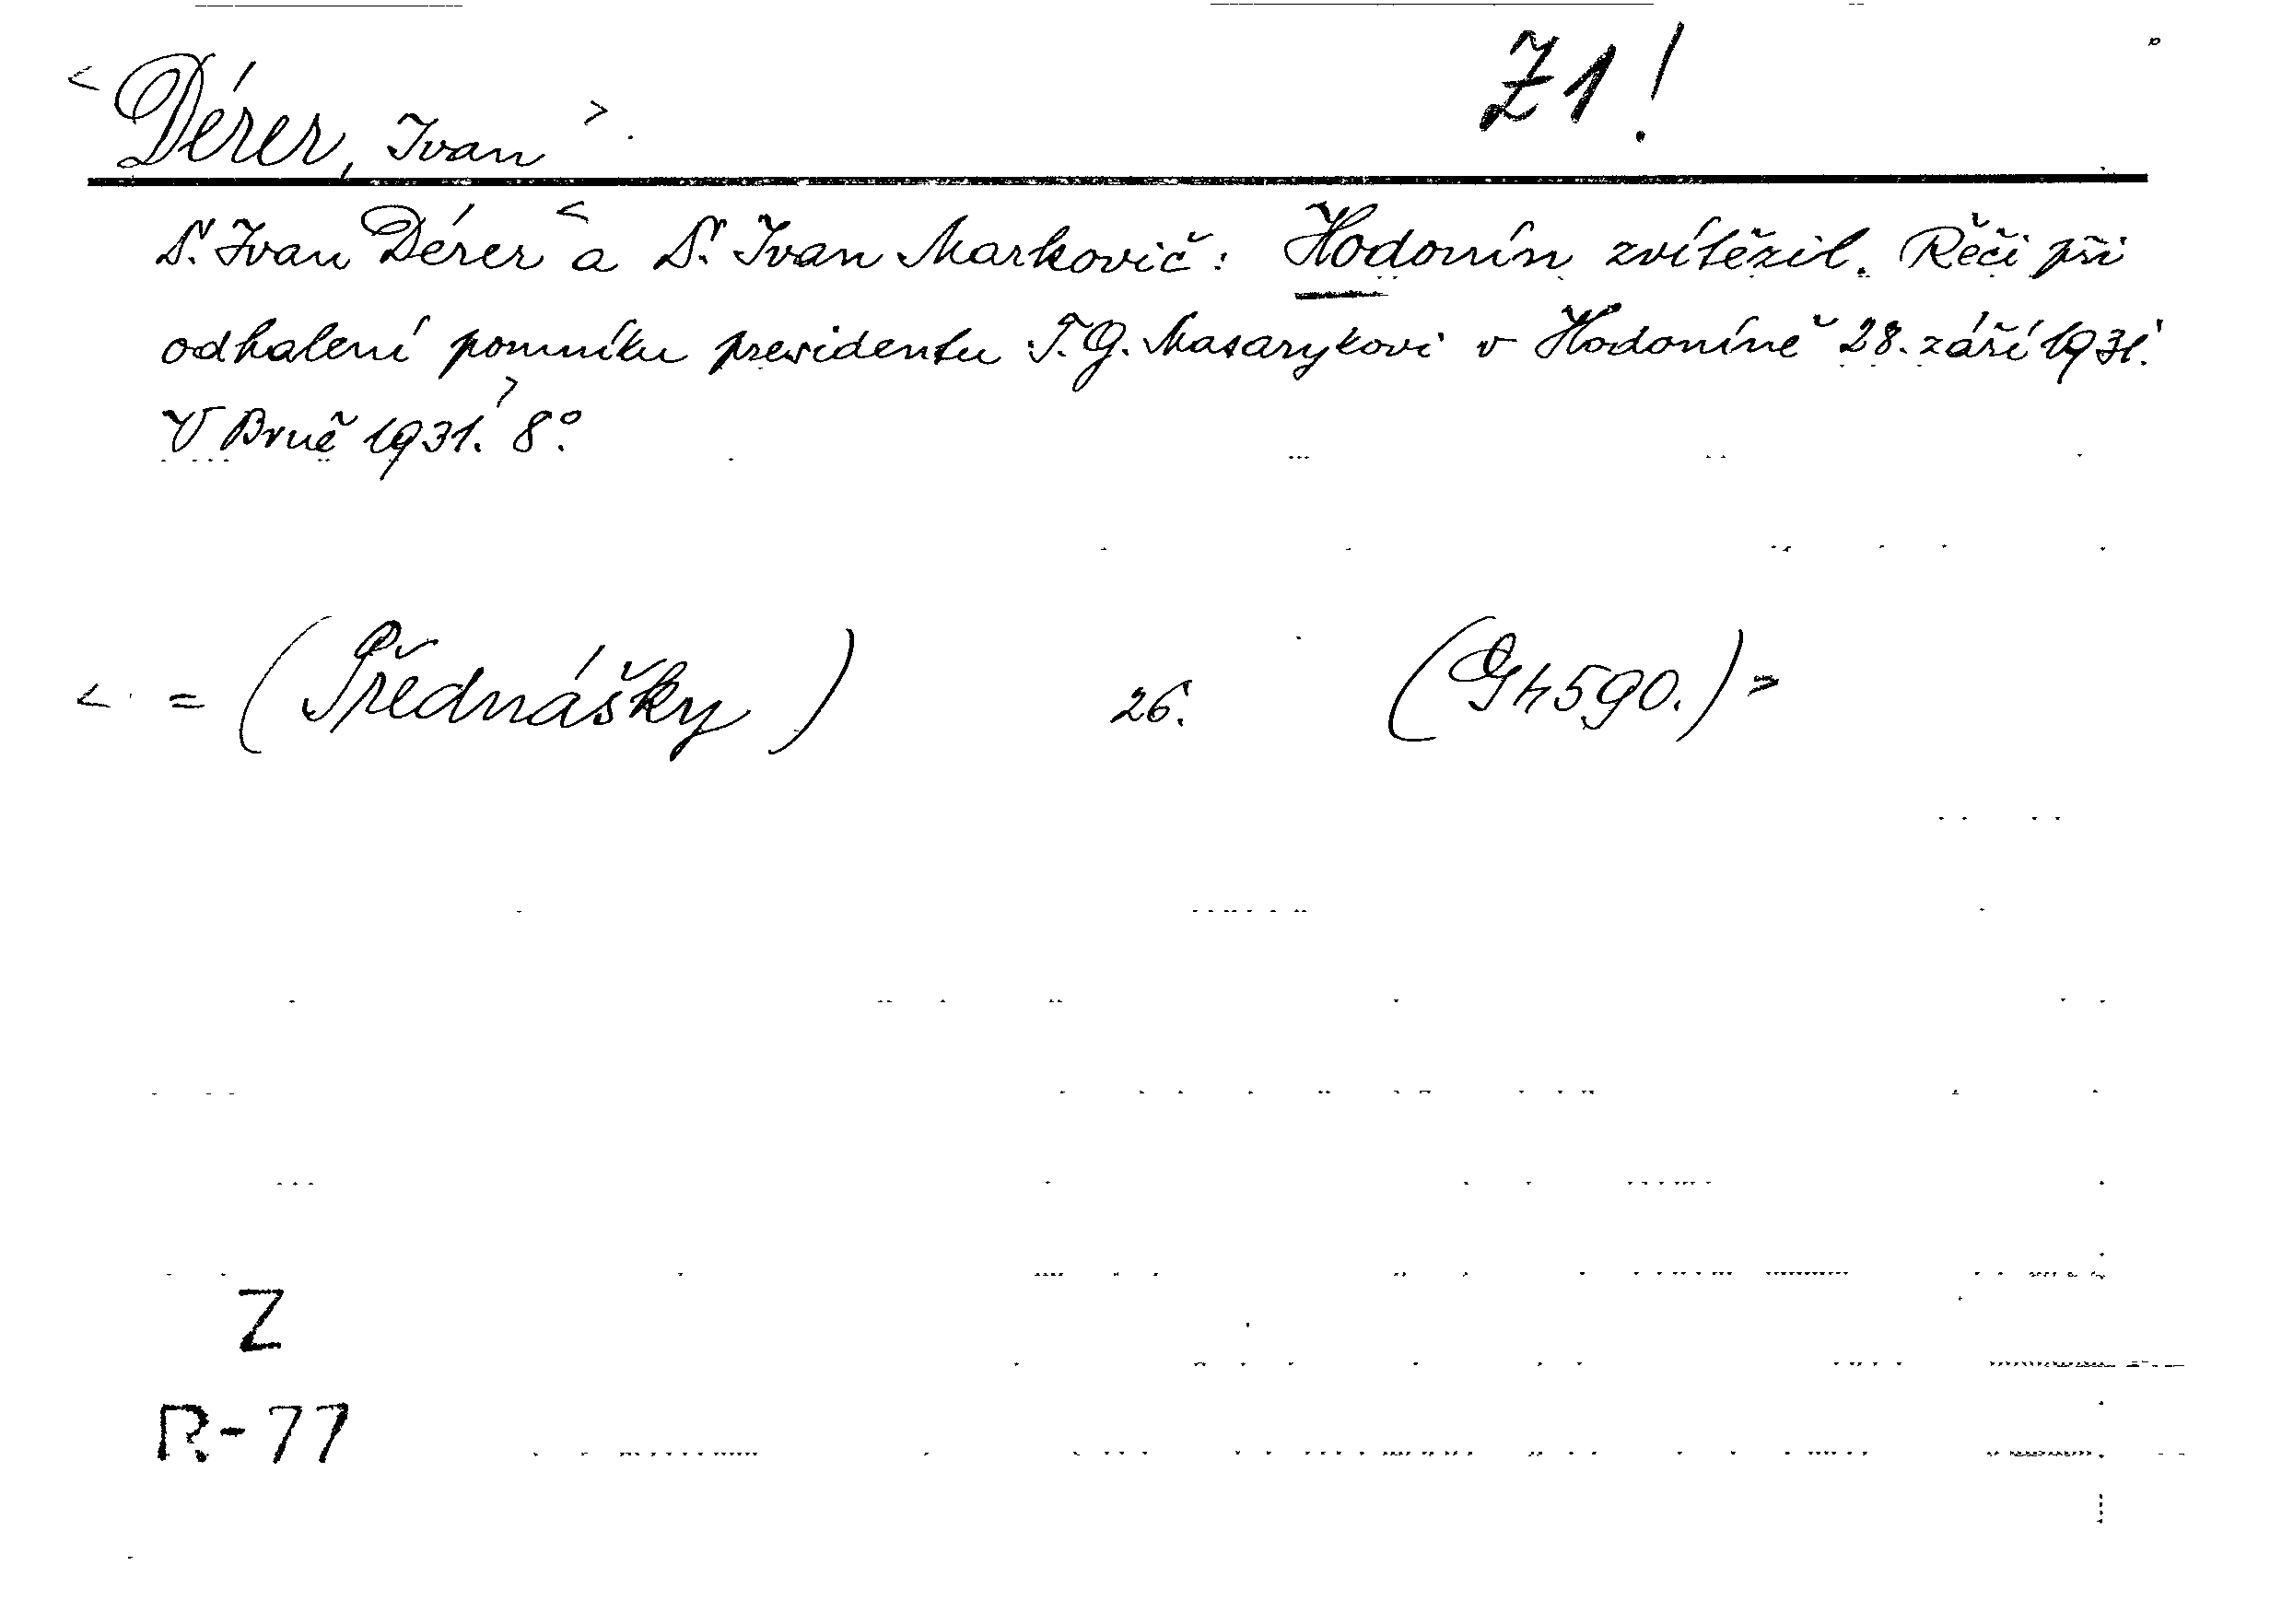 Z1!
< Dérer, Ivan >.
D. Ivan Dérer < a D. Ivan Markovič: Hodonín zvítězil. Řeči při
odhalení pomníku presidentu T. G. Masarykovi v Hodoníně 28. září 1931.
V Brně 1931. > 8°.
< = (Přednášky) 26. (Gh590.) >
Z
R-77